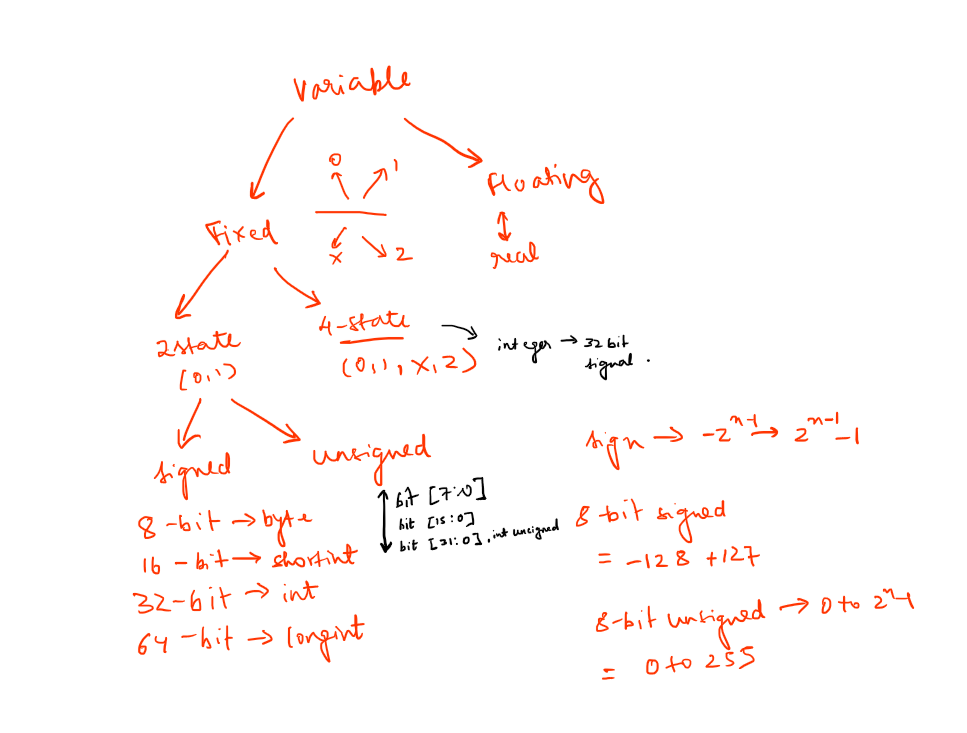 Variable
0 1
x 2
Fixed
Floating
real
2state
(0,1)
4-state
(0,1,X,2)
integer → 32 bit
signal.
signed
8-bit → byte
16-bit → shortint
32-bit → int
64-bit → longint
unsigned
bit [7:0]
bit [15:0]
bit [31:0], int unsigned
sign → -2^n-1 → 2^n-1 -1
8 bit signed
= -128 +127
8-bit unsigned → 0 to 2^n-1
= 0 to 255